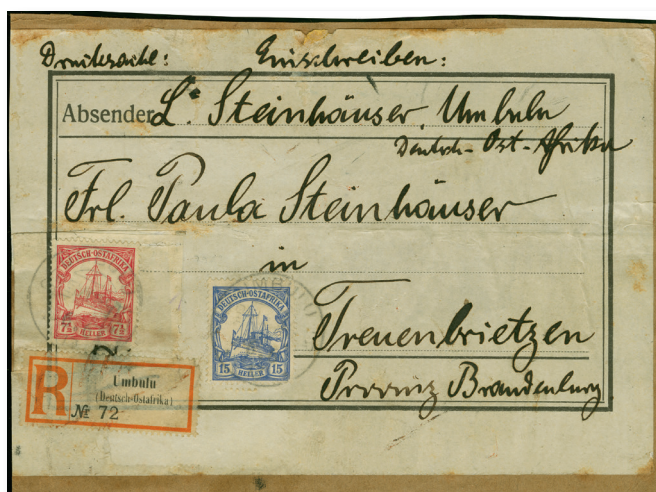 Drucksache: Einschreiben:
Absender L. Steinhäuser, Umbulu
Deutsch-Ost-Afrika
Frl. Paula Steinhäuser
in
Treuenbrietzen
Provinz Brandenburg
DEUTSCH-OSTAFRIKA
7½ 7½
HELLER
DEUTSCH-OSTAFRIKA
15 15
HELLER
R
Umbulu
(Deutsch-Ostafrika)
№ 72